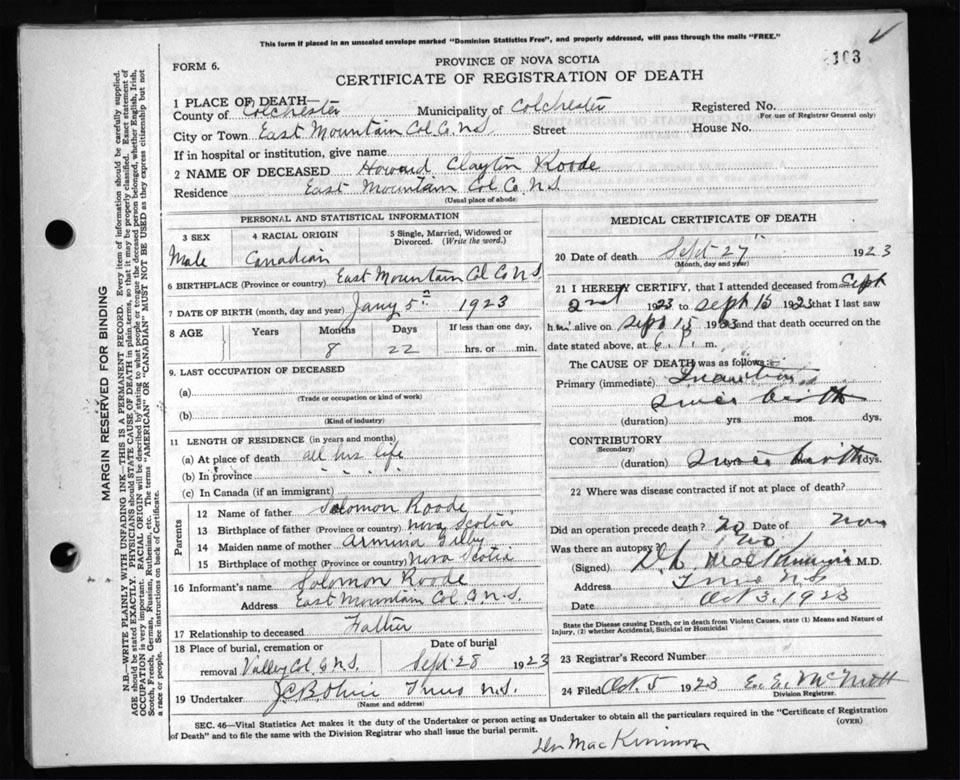 This form if placed in an unsealed envelope marked "Dominion Statistics Free", and properly addressed, will pass through the mails "FREE."
FORM 6.
PROVINCE OF NOVA SCOTIA
103
CERTIFICATE OF REGISTRATION OF DEATH
1 PLACE OF DEATH—
County of Colchester Municipality of Colchester Registered No.
(For use of Registrar General only)
City or Town East Mountain Col. Co. N.S. Street House No.
If in hospital or institution, give name
2 NAME OF DECEASED Howard Clayton Roode
Residence East Mountain Col. Co. N.S.
(Usual place of abode)
PERSONAL AND STATISTICAL INFORMATION
3 SEX 4 RACIAL ORIGIN 5 Single, Married, Widowed or Divorced. (Write the word.)
Male Canadian
6 BIRTHPLACE (Province or country) East Mountain Col Co N.S.
7 DATE OF BIRTH (month, day and year) Jany 5th 1923
8 AGE Years Months Days If less than one day,
8 22 hrs. or min.
9. LAST OCCUPATION OF DECEASED
(a)
(Trade or occupation or kind of work)
(b)
(Kind of industry)
11 LENGTH OF RESIDENCE (in years and months)
(a) At place of death all his life
(b) In province " " "
(c) In Canada (if an immigrant)
Parents
12 Name of father Solomon Roode
13 Birthplace of father (Province or country) Nova Scotia
14 Maiden name of mother Armina
15 Birthplace of mother (Province or country) Nova Scotia
16 Informant's name Solomon Roode
Address East Mountain Col. Co. N.S.
17 Relationship to deceased Father
18 Place of burial, cremation or removal Valley Col. Co N.S. Date of burial Sept 28 1923
19 Undertaker Truro N.S.
(Name and address)
MEDICAL CERTIFICATE OF DEATH
20 Date of death Sept 27" 1923
(Month, day and year)
21 I HEREBY CERTIFY, that I attended deceased from Sept
2nd 1923 to Sept 15 1923 that I last saw
him alive on Sept 15 1923 and that death occurred on the
date stated above, at m.
The CAUSE OF DEATH was as follows:
Primary (immediate) Inanition
since birth
(duration) yrs mos. dys.
CONTRIBUTORY
(Secondary)
(duration) since birth dys.
22 Where was disease contracted if not at place of death?
Did an operation precede death? no Date of
Was there an autopsy? no
(Signed) M.D.
Address Truro N.S.
Date Oct 3. 1923
State the Disease causing Death, or in death from Violent Causes, state (1) Means and Nature of Injury, (2) whether Accidental, Suicidal or Homicidal
23 Registrar's Record Number
24 Filed Oct. 5 1923 E. E. McNutt
Division Registrar.
SEC. 46—Vital Statistics Act makes it the duty of the Undertaker or person acting as Undertaker to obtain all the particulars required in the "Certificate of Registration
of Death" and to file the same with the Division Registrar who shall issue the burial permit. (OVER)
MacKinnon
MARGIN RESERVED FOR BINDING
N.B.—WRITE PLAINLY WITH UNFADING INK—THIS IS A PERMANENT RECORD. Every item of information should be carefully supplied.
AGE should be stated EXACTLY. PHYSICIANS should STATE CAUSE OF DEATH in plain terms, so that it may be properly classified. Exact statement of
OCCUPATION is very important. RACIAL ORIGIN will be described by stating to what people or tongue the deceased person belonged, whether English, Irish,
Scotch, French, German, Russian, Ruthenian, etc. The terms "AMERICAN" OR "CANADIAN" MUST NOT BE USED as they express citizenship but not
a race or people. See instructions on back of Certificate.